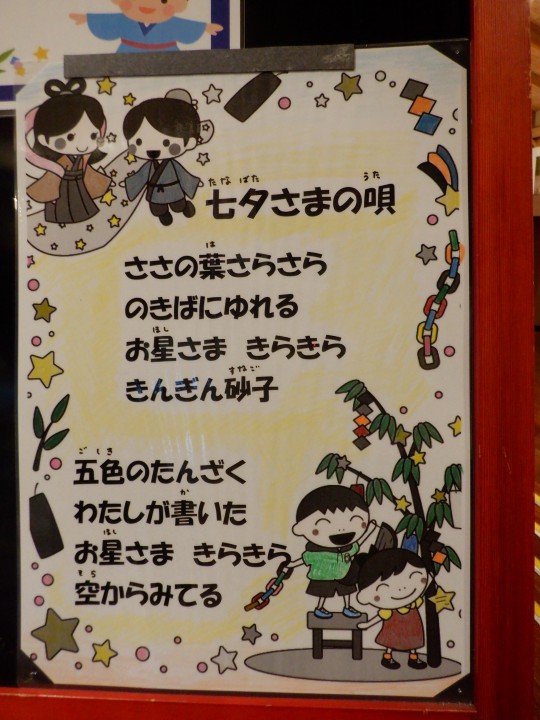 七夕さまの唄
ささの葉さらさら
のきばにゆれる
お星さま きらきら
きんぎん砂子
五色のたんざく
わたしが書いた
お星さま きらきら
空からみてる